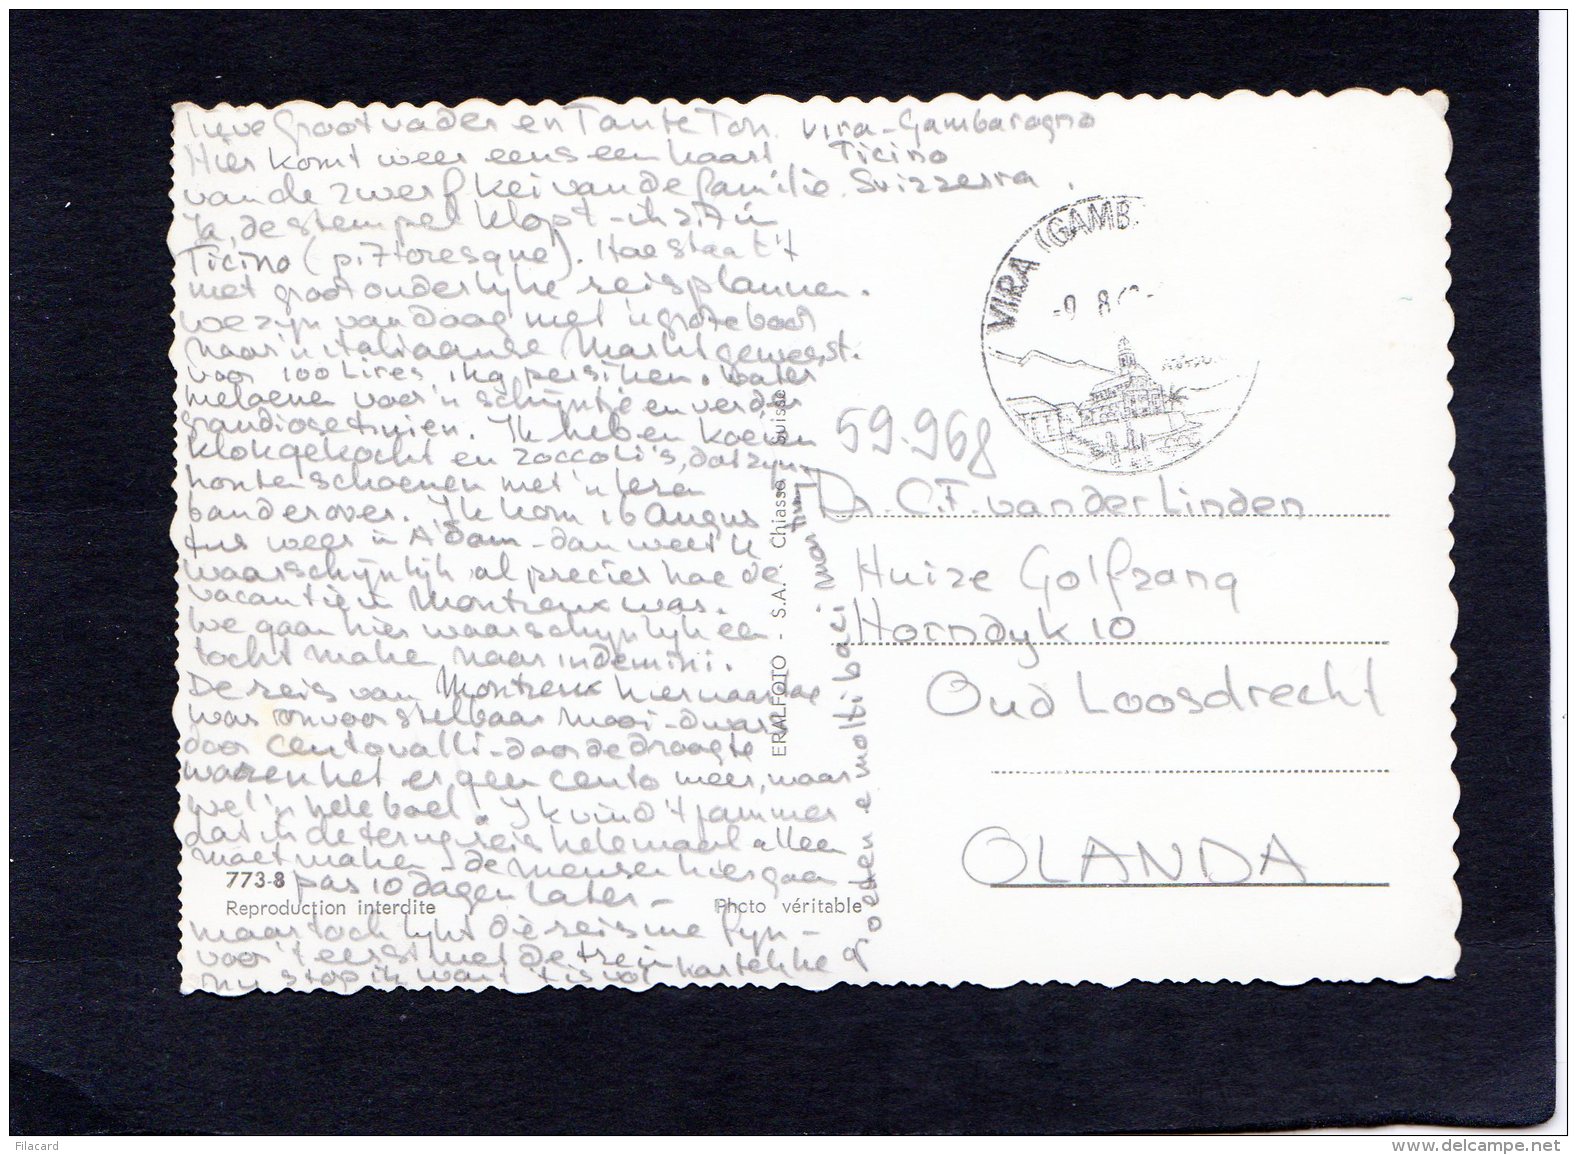 Lieve Grootvader en Tante Ton. Vira-Gambarogno
Hier komt weer eens een kaart Ticino
van de zwerfkei van de familie. Svizzerra.
Ja, de stempel klopt - ik zit in
Ticino (pittoresque). Hoe staat 't
met grootouderlijke reisplannen.
We zijn vandaag met 'n grote boot
naar 'n italiaanse Markt geweest.
voor 100 Lires, 1 kg persiken. Water
meloenen voor 'n schijntje en verder
grandiose tinien. Ik heb en koeien
klok gekocht en zoccoli's, dat zijn
houten schoenen met 'n leren
band erover. Ik kom 16 Augus
tus weer in A'dam - dan weet u
waarschijnlijk al precies hoe de
vacantie in Montreux was.
We gaan hier waarschijnlijk een
tocht maken, naar indemini.
De reis van Montreux hiernaartoe
was onvoorstelbaar mooi - dwars
door Centovalli - door de droogte
waren het er geen cento meer, maar
wel 'n heleboel. Ik vind 't jammer
dat ik de terugreis helemaal alleen
moet maken - de mensen hier gaan
pas 10 dagen later -
maar toch lijkt die reis me fijn -
voor 't eerst met de trein
nu stop ik want 't is vol
kartekke
groeten e molti baci
773-8
Reproduction interdite
Photo véritable
ERALFOTO - S.A. - Chiasso Suisse
VIRA (GAMB.
-9.8.6
59.968
Dr. C.F. van der Linden
Huize Golfzang
Horndyk 10
Oud Loosdrecht
OLANDA
Filacard
www.delcampe.net